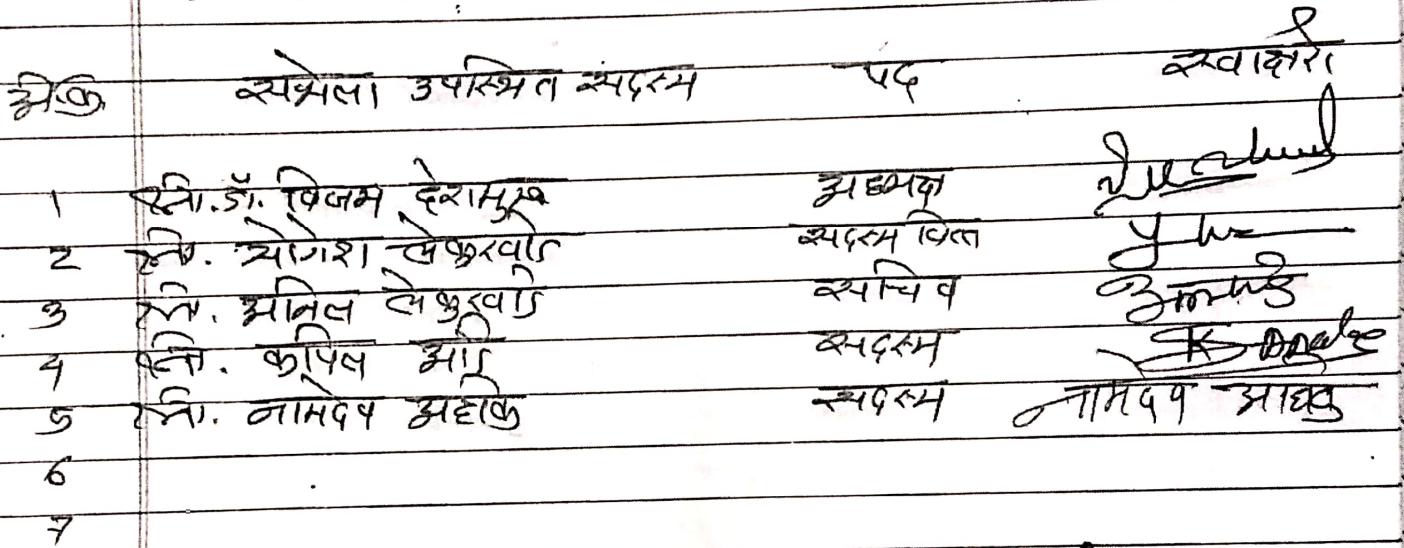 अ.क्र सभेला उपस्थित सदस्य पद स्वाक्षरी
1 श्री. डॉ. विजय देशमुख अध्यक्ष
2 श्री. योगेश लेकुरवाडे सदस्य वित्त
3 श्री. अनिल लेकुरवाडे सचिव
4 श्री. कपिल सदस्य
5 श्री. नामदेव सदस्य नामदेव
6
7